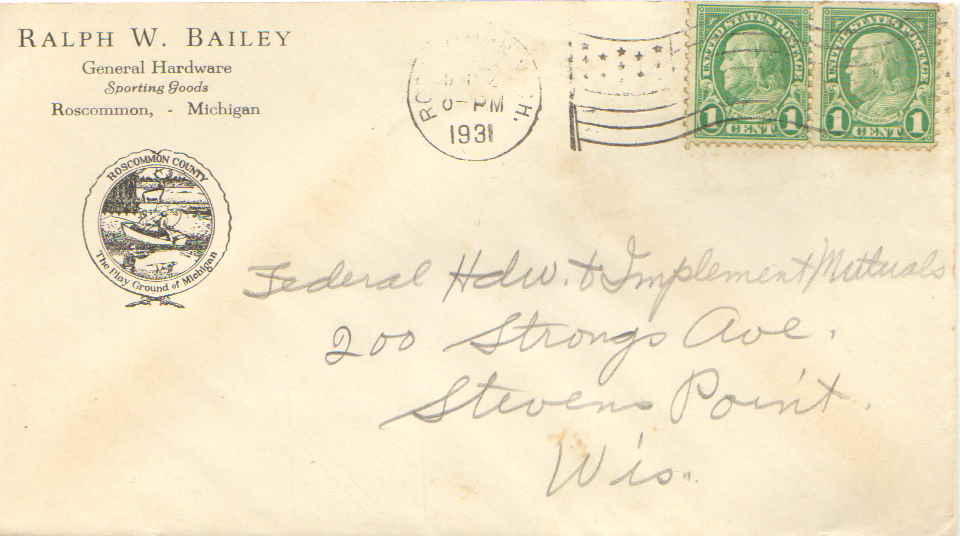 RALPH W. BAILEY
General Hardware
Sporting Goods
Roscommon, - Michigan
ROSCOMMON COUNTY
The Play Ground of Michigan
PM
1931
UNITED STATES POSTAGE
1 CENT 1
UNITED STATES POSTAGE
1 CENT 1
Federal Hdw. & Implement Mutuals
200 Strongs Ave.
Stevens Point.
Wis.